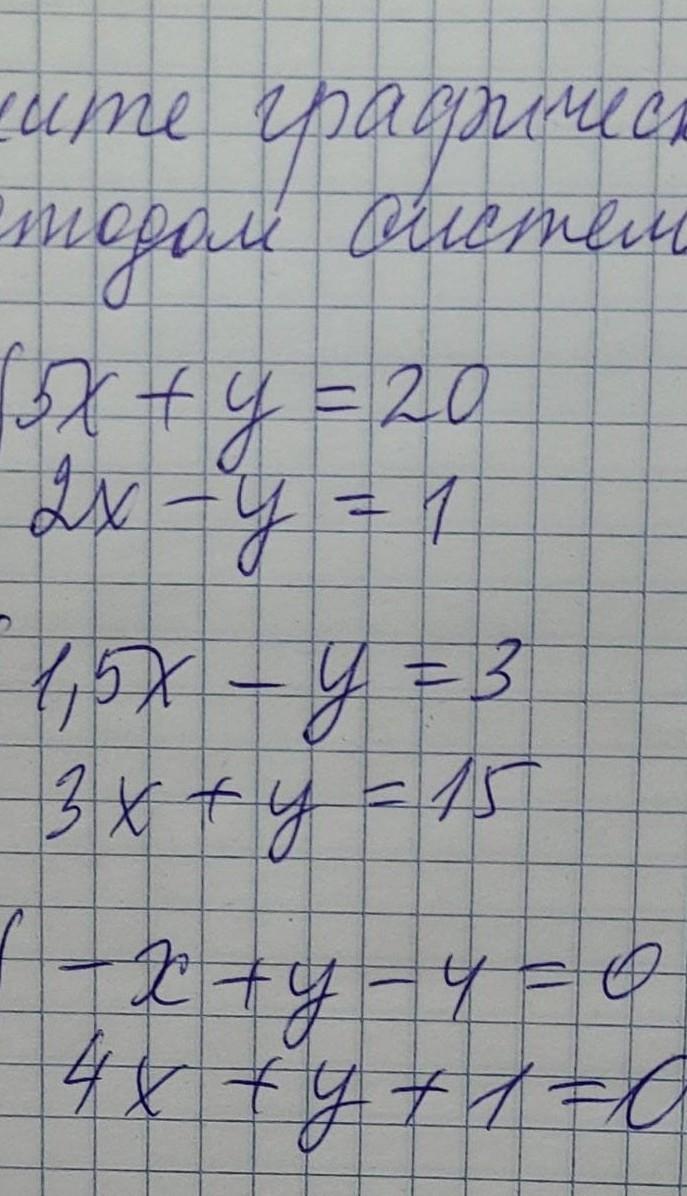 ите графическ
тодом систем
5x + y = 20
2x - y = 1
1,5x - y = 3
3x + y = 15
-x + y - 4 = 0
4x + y + 1 = 0